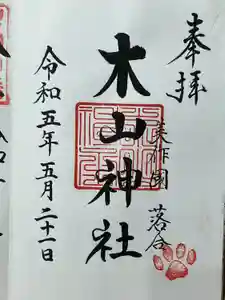 奉拝
美作國 落合
木山神社
令和五年五月二十一日